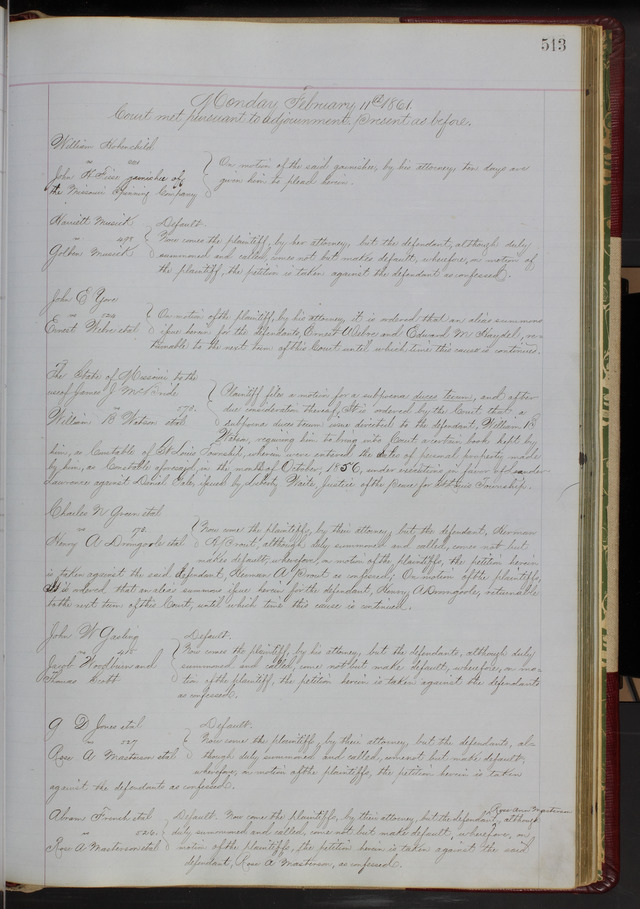 513
Monday February 11th 1861.
Court met pursuant to adjournment, Present as before.
William
vs
John H garnishee of
the Missouri Company
On motion of the said garnishee, by his attorney, ten days are
given him to plead herein.
Harriett Musick
vs
Musick
Default.
Now comes the plaintiff, by her attorney, but the defendant, although duly
summoned and called, comes not but makes default, wherefore, on motion of
the plaintiff, the petition is taken against the defendant as confessed.
John E Yore
vs
Ernest et al
On motion of the plaintiff, by his attorney, it is ordered that an alias summons
issue herein for the defendants, Ernest and Edward M re-
turnable to the next term of this Court until which time this cause is continued.
The State of Missouri to the
use of James J McBride
vs
William B Watson et al
Plaintiff files a motion for a subpoena duces tecum, and after
due consideration thereof, It is ordered by the Court that a
subpoena duces tecum issue directed to the defendant, William B
Watson, requiring him to bring into Court a certain book kept by
him, as Constable of St Louis Township, wherein were entered the sales of personal property made
by him, as Constable aforesaid, in the month of October, 1856, under executions in favor of
against Daniel issued by Justice of the Peace for St Louis Township.
Charles N Green et al
vs
Henry A et al
Now come the plaintiffs, by their attorney, but the defendant, Herman
A although duly summoned and called, comes not but
makes default, wherefore, on motion of the plaintiffs, the petition herein
is taken against the said defendant, Herman A as confessed; On motion of the plaintiffs,
it is ordered that an alias summons issue herein for the defendant, Henry A returnable
to the next term of this Court, until which time this cause is continued.
John W
vs
Jacob Woodburn and
Thomas Scott
Default.
Now comes the plaintiff, by his attorney, but the defendants, although duly
summoned and called, come not but make default, wherefore, on mo-
tion of the plaintiff, the petition herein is taken against the defendants
as confessed.
G D Jones et al
vs 527
Rose A Masterson et al
Default.
Now come the plaintiffs, by their attorney, but the defendants, al-
though duly summoned and called, come not but make default,
wherefore, on motion of the plaintiffs, the petition herein is taken
against the defendants as confessed.
French et al
vs 526.
Rose A Masterson et al
Default. Now come the plaintiffs, by their attorney, but the defendant, Rose Ann Masterson although
duly summoned and called, come not but make default, wherefore, on
motion of the plaintiffs, the petition herein is taken against the said
defendant, Rose A Masterson, as confessed.